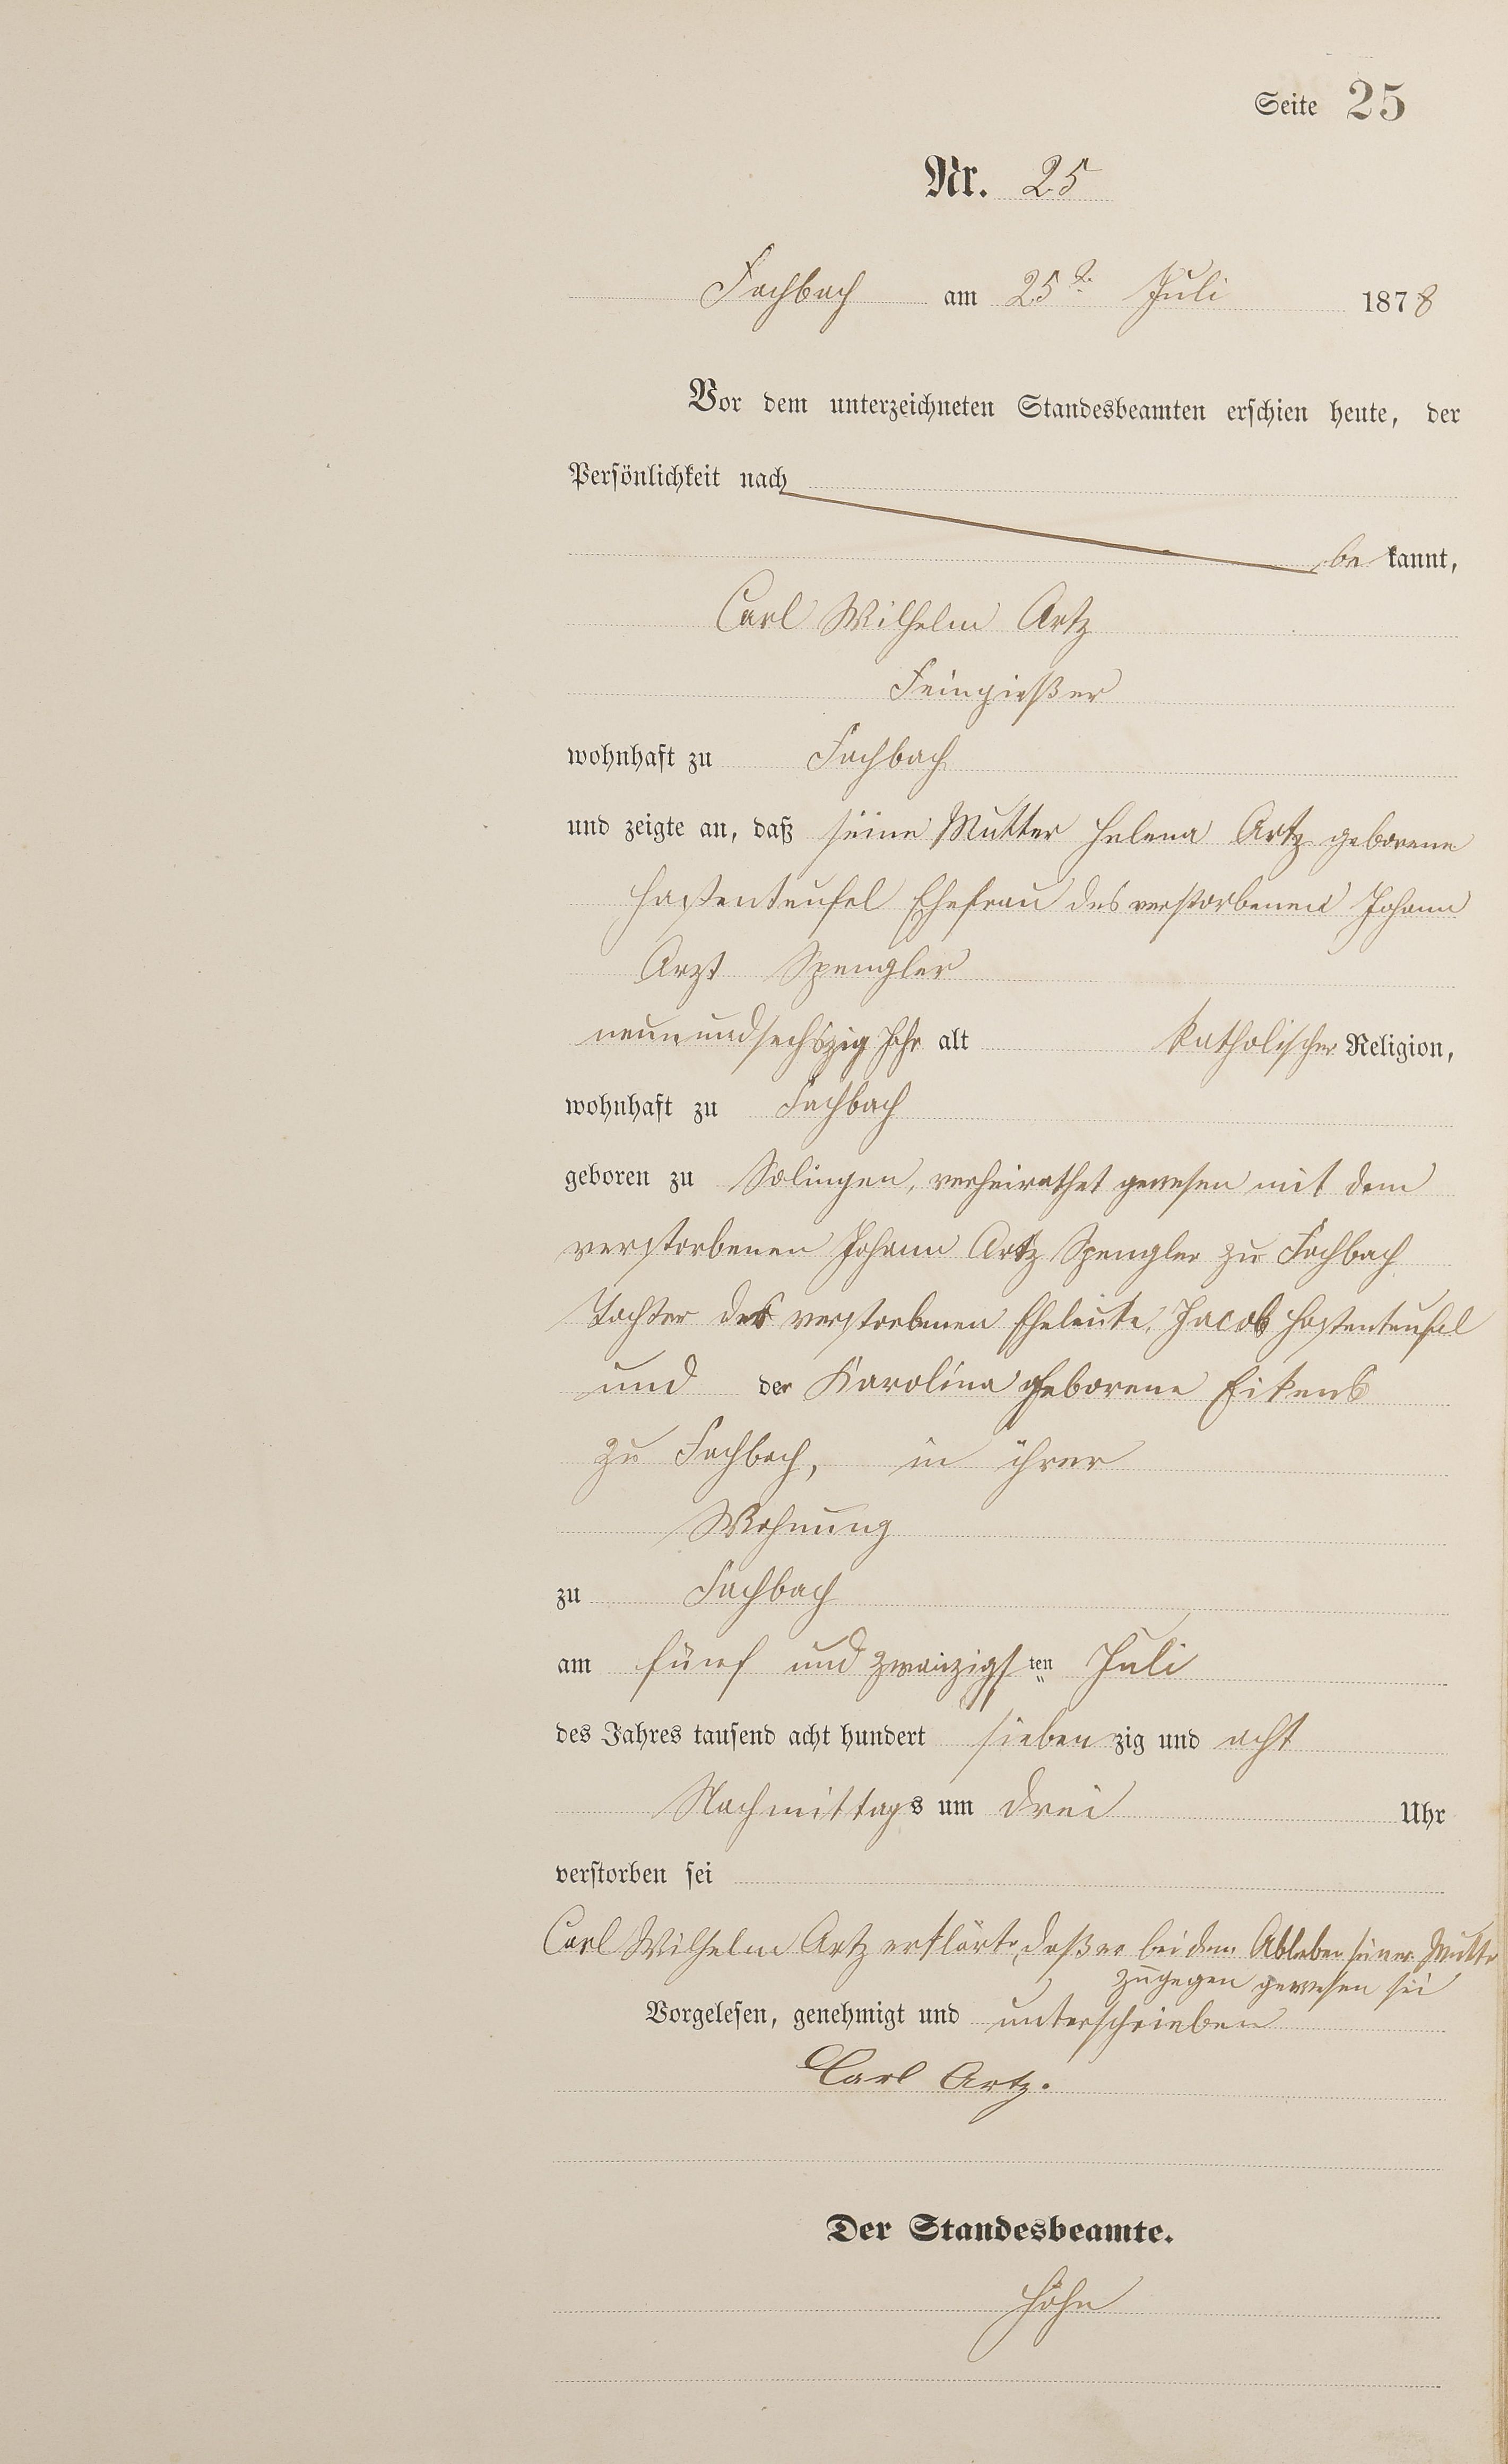 Seite 25
Nr. 25
Fachbach am 25t Juli 1878
Vor dem unterzeichneten Standesbeamten erschien heute, der
Persönlichkeit nach
bekannt,
Carl Wilhelm Artz
Feingießer
wohnhaft zu Fachbach
und zeigte an, daß seine Mutter Helena Artz geborene
Hastenteufel Ehefrau des verstorbenen Johann
Arzt Spengler
neunundsechszig Jahr alt katholischer Religion,
wohnhaft zu Fachbach
geboren zu Solingen, verheirathet gewesen mit dem
verstorbenen Johann Artz Spengler zu Fachbach
Tochter der verstorbenen Eheleute, Jacob Hastenteufel
und der Karolina geborene Eikens
zu Fachbach, in ihrer
Wohnung
zu Fachbach
am fünf und zwanzigsten Juli
des Jahres tausend acht hundert siebenzig und acht
Nachmittags um drei Uhr
verstorben sei
Carl Wilhelm Artz erklärte, daß er bei dem Ableben seiner Mutter
zugegen gewesen sei
Vorgelesen, genehmigt und unterschrieben
Carl Artz.
Der Standesbeamte.
Höhn